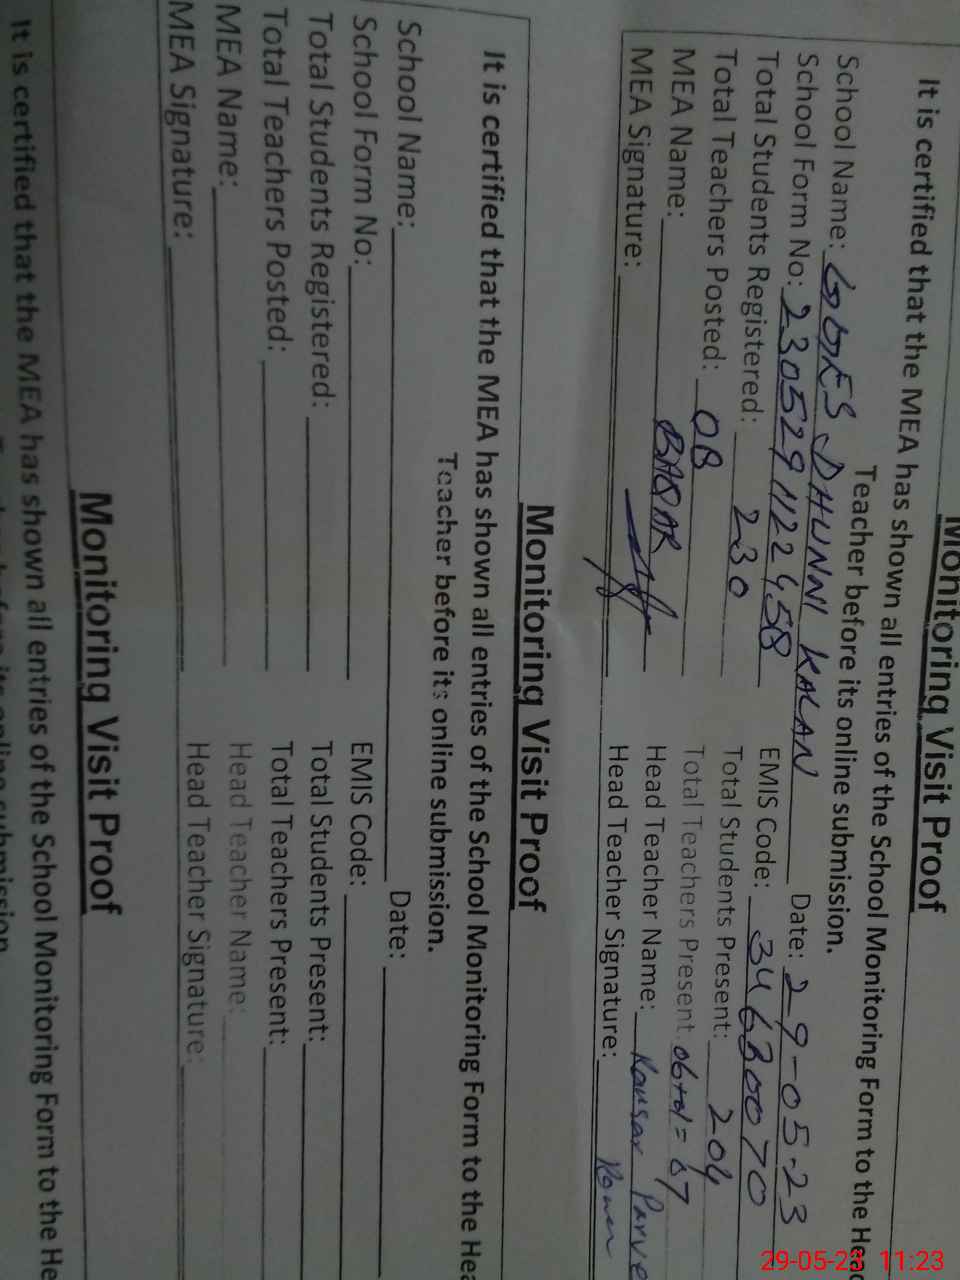 Monitoring Visit Proof
It is certified that the MEA has shown all entries of the School Monitoring Form to the Head
Teacher before its online submission.
School Name: GGES DHUNNI KALAN Date: 29-05-23
School Form No: 230529112458 EMIS Code: 34630070
Total Students Registered: 230 Total Students Present: 204
Total Teachers Posted: 08 Total Teachers Present: 06+01=07
MEA Name: BABAR Head Teacher Name: Kausar Parve
MEA Signature: Head Teacher Signature:
Monitoring Visit Proof
It is certified that the MEA has shown all entries of the School Monitoring Form to the Hea
Teacher before its online submission.
School Name: Date:
School Form No: EMIS Code:
Total Students Registered: Total Students Present:
Total Teachers Posted: Total Teachers Present:
MEA Name: Head Teacher Name:
MEA Signature: Head Teacher Signature:
Monitoring Visit Proof
It is certified that the MEA has shown all entries of the School Monitoring Form to the He
29-05-23 11:23